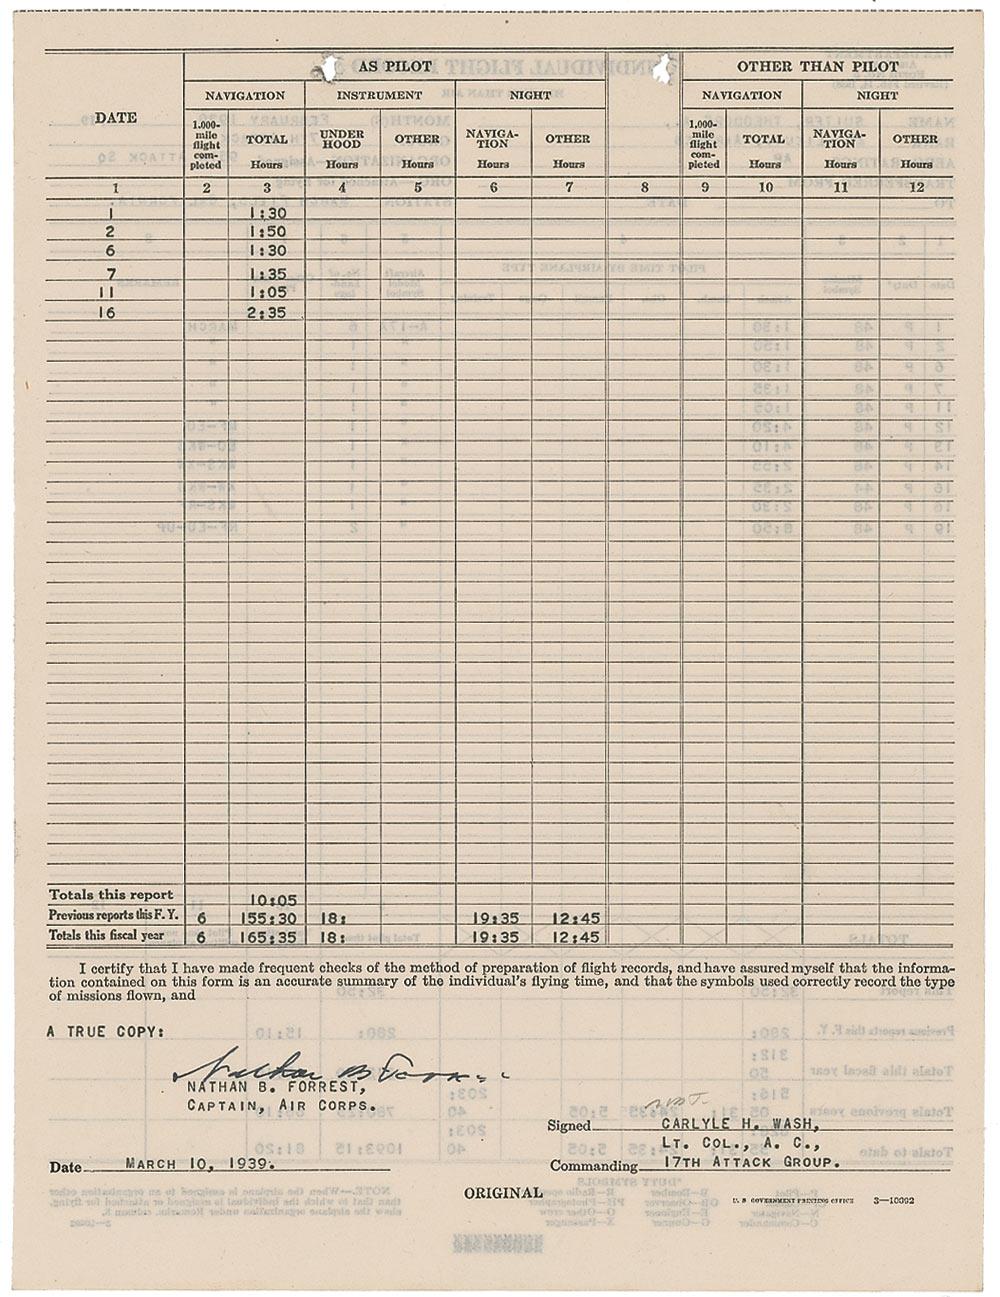 AS PILOT OTHER THAN PILOT
DATE NAVIGATION INSTRUMENT NIGHT NAVIGATION NIGHT
1,000-mile flight com-pleted TOTAL Hours UNDER HOOD Hours OTHER Hours NAVIGA-TION Hours OTHER Hours 1,000-mile flight com-pleted TOTAL Hours NAVIGA-TION Hours OTHER Hours
1 2 3 4 5 6 7 8 9 10 11 12
1 1:30
2 1:50
6 1:30
7 1:35
11 1:05
16 2:35
Totals this report 10:05
Previous reports this F. Y. 6 155:30 18: 19:35 12:45
Totals this fiscal year 6 165:35 18: 19:35 12:45
I certify that I have made frequent checks of the method of preparation of flight records, and have assured myself that the informa-
tion contained on this form is an accurate summary of the individual's flying time, and that the symbols used correctly record the type
of missions flown, and
A TRUE COPY:
Nathan B. Forrest
NATHAN B. FORREST,
CAPTAIN, AIR CORPS.
Signed CARLYLE H. WASH,
LT. COL., A. C.,
Date MARCH 10, 1939. Commanding 17TH ATTACK GROUP.
ORIGINAL
U. S. GOVERNMENT PRINTING OFFICE 3—10392